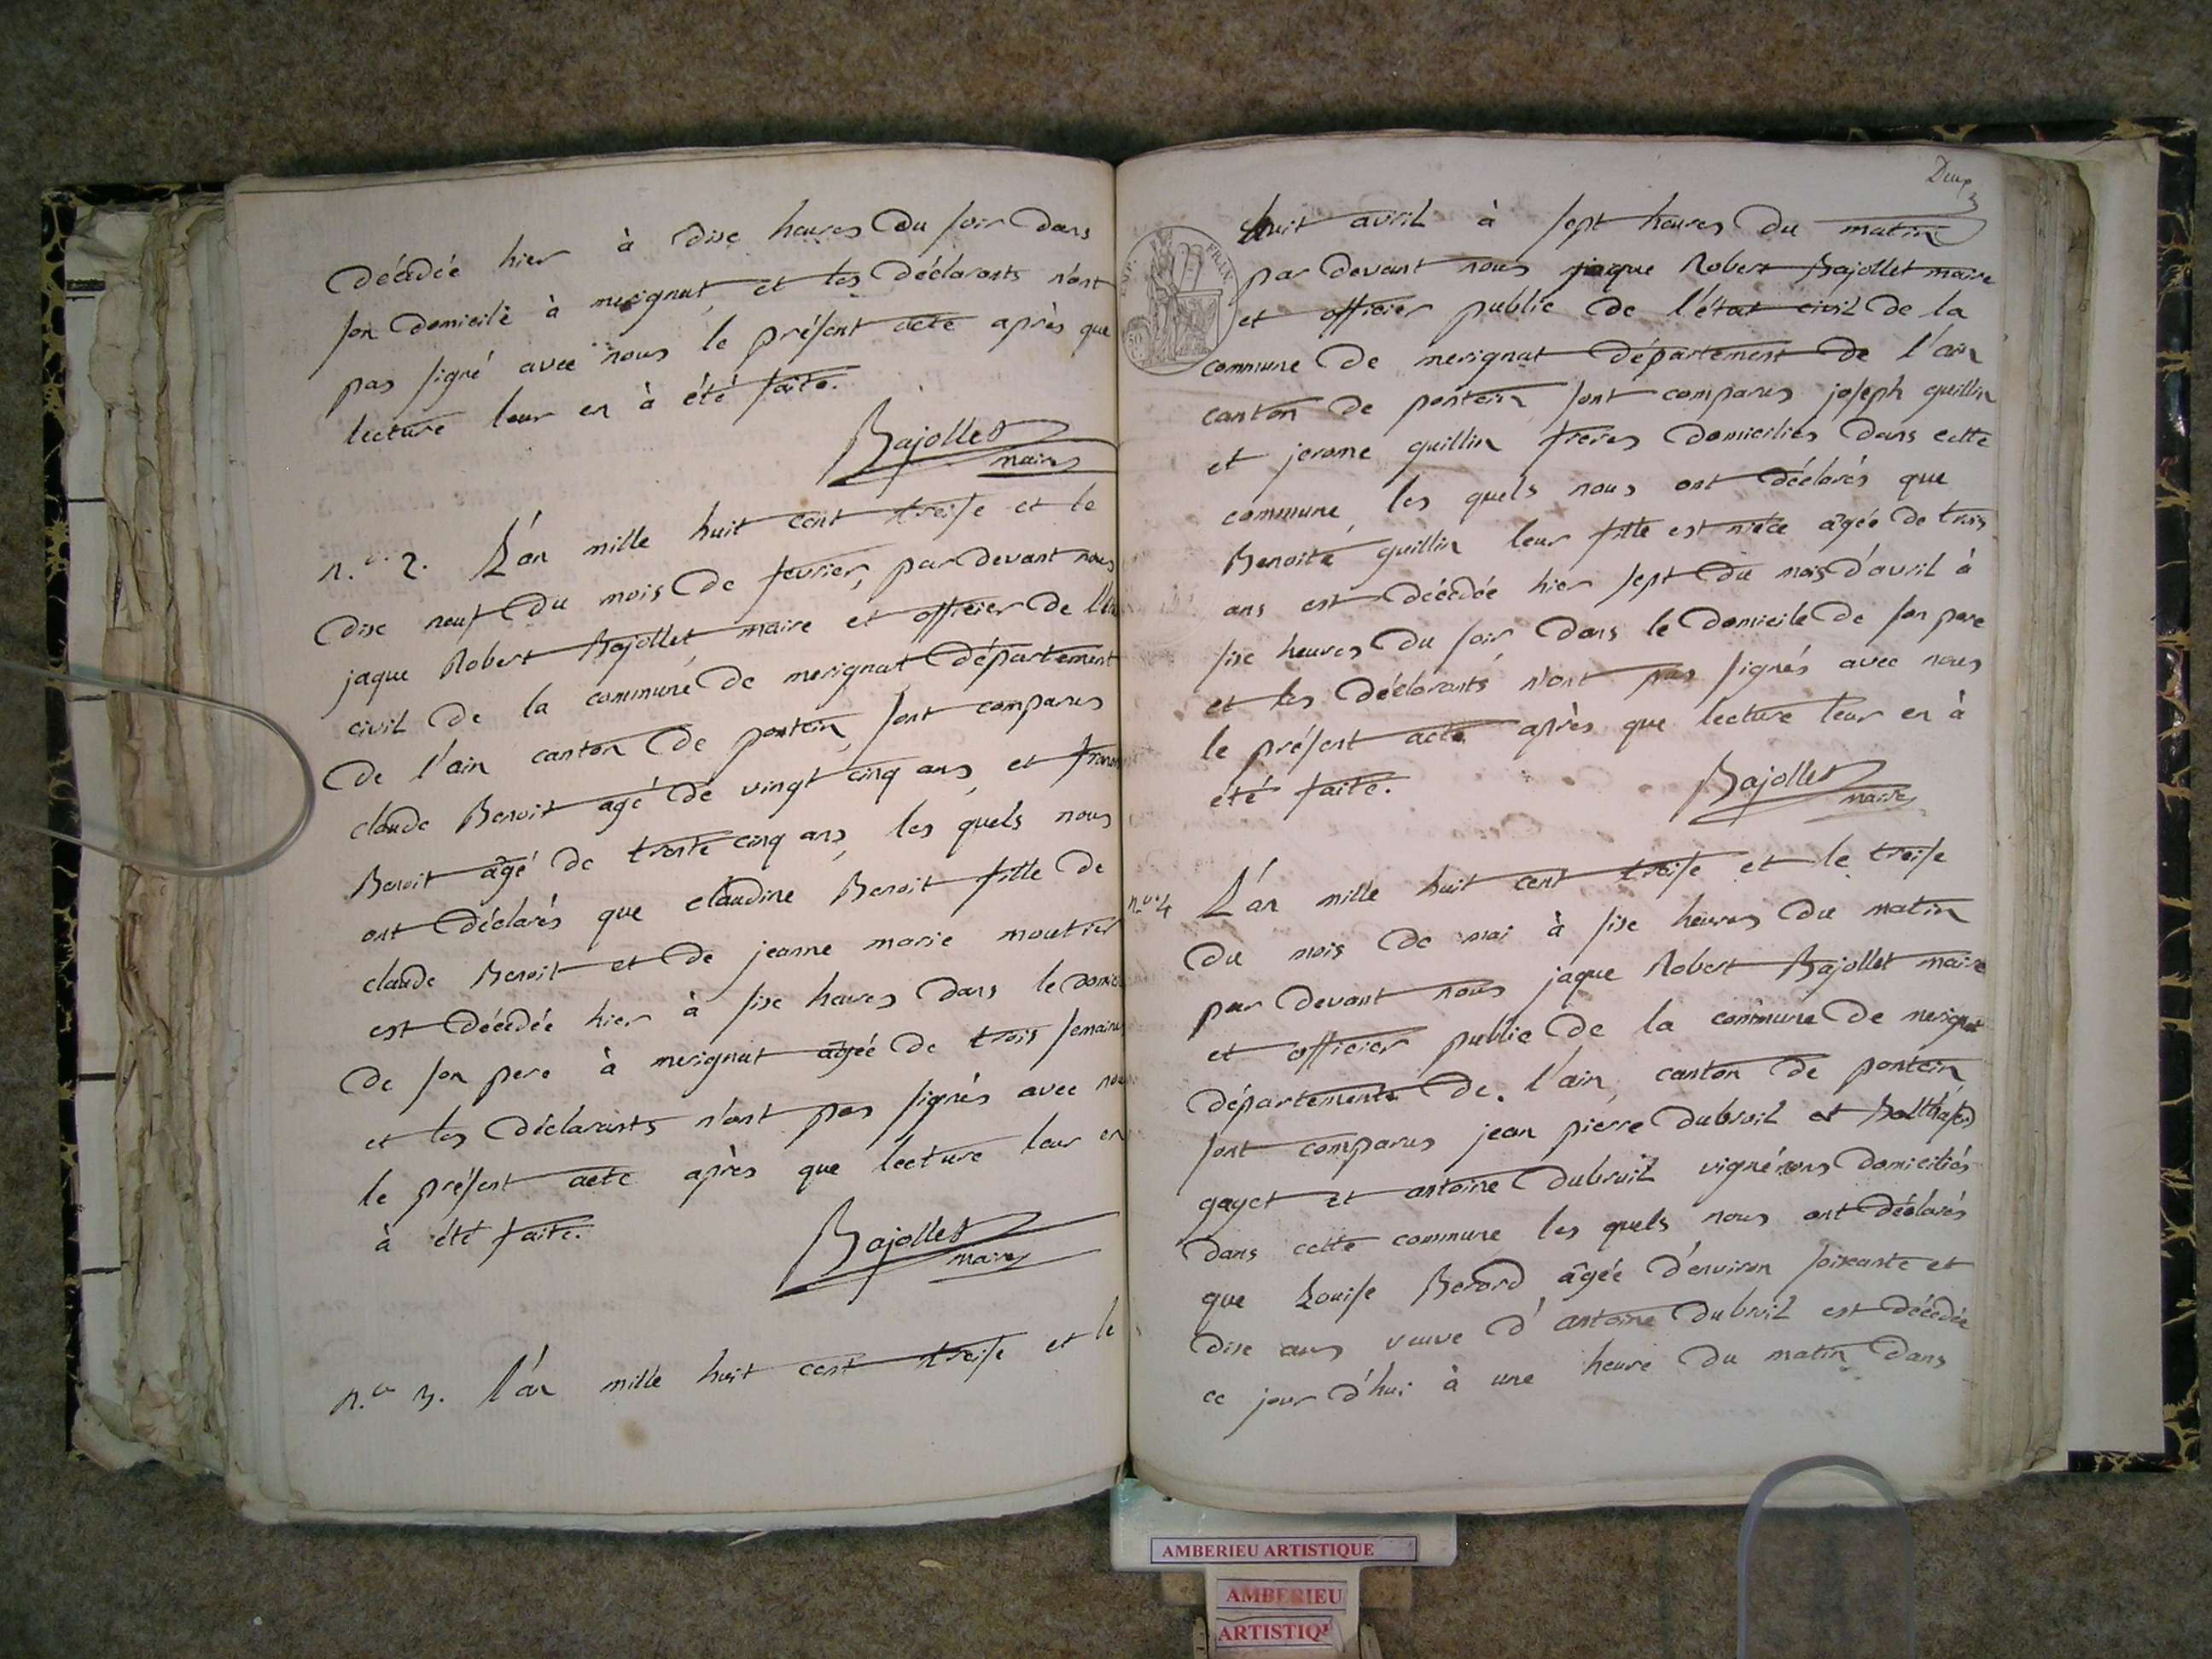 décédée hier à dise heures du soir dans
son domicile à merignat, et les déclarants n'ont
pas signé avec nous le présent acte après que
lecture leur en à été faite.
Bajollet
maire
n.º 2. L'an mille huit cent treise et le
dise neuf du mois de fevrier, par devant nous
jaque Robert Bajollet maire et officier de l'
civil de la commune de merignat département
de l'ain canton de pontein, sont comparus
claude Benoit agé de vingt cinq ans, et
Benoit âgé de trente cinq ans, les quels nous
ont déclarés que claudine Benoit fille de
claude Benoit et de jeanne marie moutier
est décédée hier à sise heures dans le
de son pere à merignat âgée de trois semaines
et les déclarants n'ont pas signés avec nous
le présent acte après que lecture leur en
à été faite.
Bajollet
maire
n.º 3. l'an mille huit cent treise et le
Deux
3
EMP. FRAN.
50
huit avril à sept heures du matin
par devant nous jaque Robert Bajollet maire
et officier public de l'état civil de la
commune de merignat département de l'ain
canton de pontein sont comparus joseph guillin
et jerome guillin freres domiciliés dans cette
commune, les quels nous ont déclarés que
Benoite guillin leur fille est niéce âgée de trois
ans est décédée hier sept du mois d'avril à
sise heures du soir, dans le domicile de son pere
et les déclarants n'ont pas signés avec nous
le présent acte après que lecture leur en à
été faite.
Bajollet
maire
n.º 4 L'an mille huit cent treise et le treise
du mois de mai à sise heures du matin
par devant nous jaque Robert Bajollet maire
et officier public de la commune de merignat
département de l'ain, canton de pontein
sont comparus jean pierre dubruil et
gayet et antoine dubruil vignérons domiciliés
dans cette commune les quels nous ont déclarés
que Louise Berord âgée d'environ soixante et
dise ans veuve d'antoine dubruil est décédée
ce jour d'hui à une heure du matin dans
AMBERIEU ARTISTIQUE
AMBERIEU
ARTISTIQ